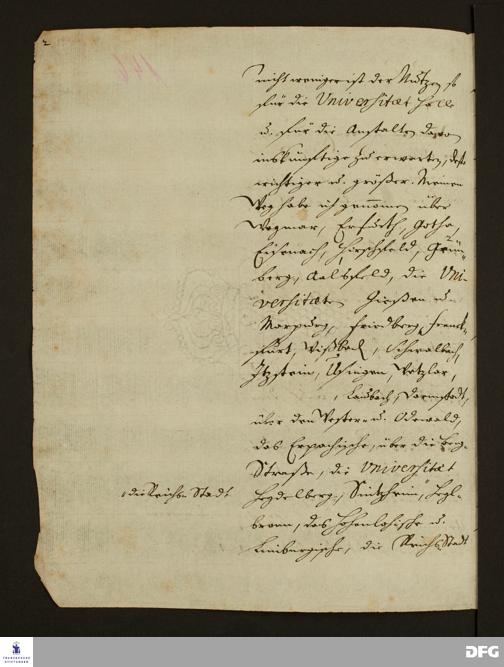 2
146
nicht weniger ist der Nutzen so
für die Universitæt Halle
u. für die Anstalten davon
inskünftige zu erwarten, desto
wichtiger u. größer. Meinen
Weg habe ich genommen über
Weymar, Erfurth, Gotha,
Eisenach, Hirschfeld, Grün-
berg, Aalsfeld, die Uni-
versitæten Gießen und
Marpurg, Friedberg, Franck-
furt, Wißbad, Schwalbach,
Itzstein, Usingen, Wetzlar,
Laubach, Darmstadt,
über den Wester- u. Odewald,
das Erpachische, über die Berg-
Straße, die Universitæt
Heydelberg, Sintzheim, Heyl-
bronn, das Hohenlohische u.
Limburgische, die Reichs Stadt
die Reichs Stadt
FRANCKESCHE STIFTUNGEN
DFG